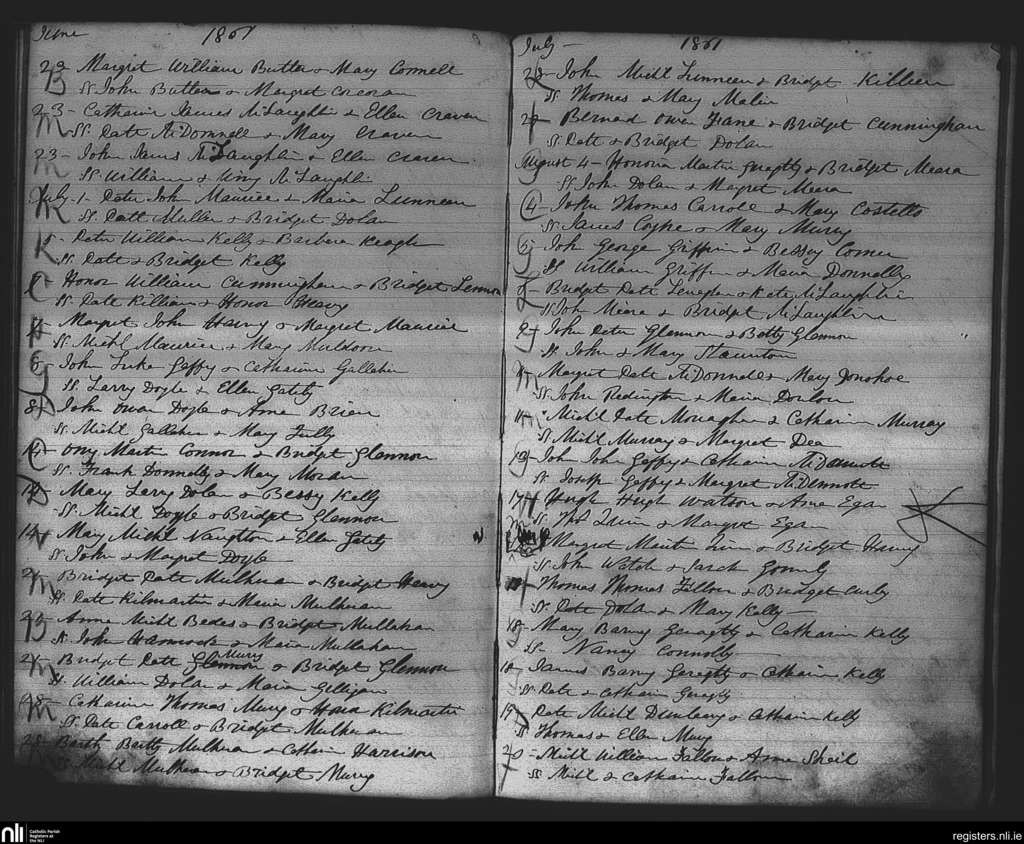 June 1861
22 Margret William Butler & Mary Connell
B Ss. John Butler & Margret Corcoran
23- Catharin James McLaughlin & Ellen Craven
M Ss. Patt McDonnell & Mary Craven
23- John James McLaughlin & Ellen Craven
M Ss. William & Mc Laughlin
July 1- Peter John Maurice & Maria Lunneen
Ss. Patt Muller & Bridget Dolan
K Peter William Kelly & Barbera Keagle
Ss. Patt & Bridget Kelly
C Honor William Cunningham & Bridget Lennon
Ss. Patt Killian & Honor Heavy
Margret John Heavy & Margret Maurice
Ss. Michl Maurice & Mary Muldoon
6 John Luke Geffy & Catharine Gallaher
G Ss. Larry Doyle & Ellen Gately
8 D John Owen Doyle & Anne Brien
Ss. Michl Gallaher & Mary Tully
14 C Martin Connor & Bridget Glennon
Ss. Frank Donnelly & Mary Moran
14 D Mary Larry Dolan & Bessy Kelly
Ss. Michl Doyle & Bridget Glennon
14 N Mary Michl Naughton & Ellen Gately
Ss. John & Margret Doyle
M Bridget Patt Mulhern & Bridget Heavy
Ss. Patt Kilmartin & Maria Mulhern
B Anne Michl Bedes & Bridget Mullahan
Ss. John & Maria Mullahan
M Bridget Patt Glennon Murry & Bridget Glennon
Ss. William Dolan & Maria Gilligan
28 Catharine Thomas Murry & Kilmartin
M Ss. Patt Carroll & Bridget Mulhern
28- Bartly Bartly Mulhern & Cathrin Harrison
M Ss. Michl Mulhern & Bridget Murry
July - 1861
28- John Michl Lunneen & Bridget Killian
Ss. Thomas & Mary Malin
Bernard Owen Fane & Bridget Cunninghan
Ss. Patt & Bridget Dolan
August 4- Honoria Martin Geraghty & Bridget Meara
Ss. John Dolan & Margret Meara
4 C John Thomas Carroll & Mary Costello
Ss. James Coyne & Mary Murry
6 G John George Griffin & Bessey Comer
Ss. William Griffin & Maria Donnelly
L Bridget Patt Lenaghan & Kate McLaughlin
Ss. John Meara & Bridget McLaughlin
9 G John Peter Glennon & Betty Glennon
Ss. John & Mary Staunton
M Margret Patt McDonnell & Mary Donohoe
Ss. John Redington & Maria Donlon
Michl Patt Monaghan & Catharin Murray
Ss. Michl Murray & Margret Dea
G John John Geffy & Catharin McDermott
Ss. Joseph Geffy & Margret McDermott
17 Hugh Hugh Watson & Anne Egan
Ss. Thos Quin & Margret Egan
Margret Martin Quin & Bridget Heavy
Ss. John Watch & Sarah Gormly
Thomas Thomas Fallon & Bridget Curly
Ss. Patt Dolan & Mary Kelly
18 Mary Barny Geraghty & Catharin Kelly
Ss- Nancy Connolly
18 James Barny Geraghty & Catharin Kelly
Ss. Patt & Catharin Geraghty
19 D Patt Michl Dunleavy & Catharin Kelly
Ss Thomas & Ellen Murry
20 - Michl William Fallon & Anne Sheil
F Ss Michl & Catharin Fallon
nli Catholic Parish
Registers at
the NLI
registers.nli.ie